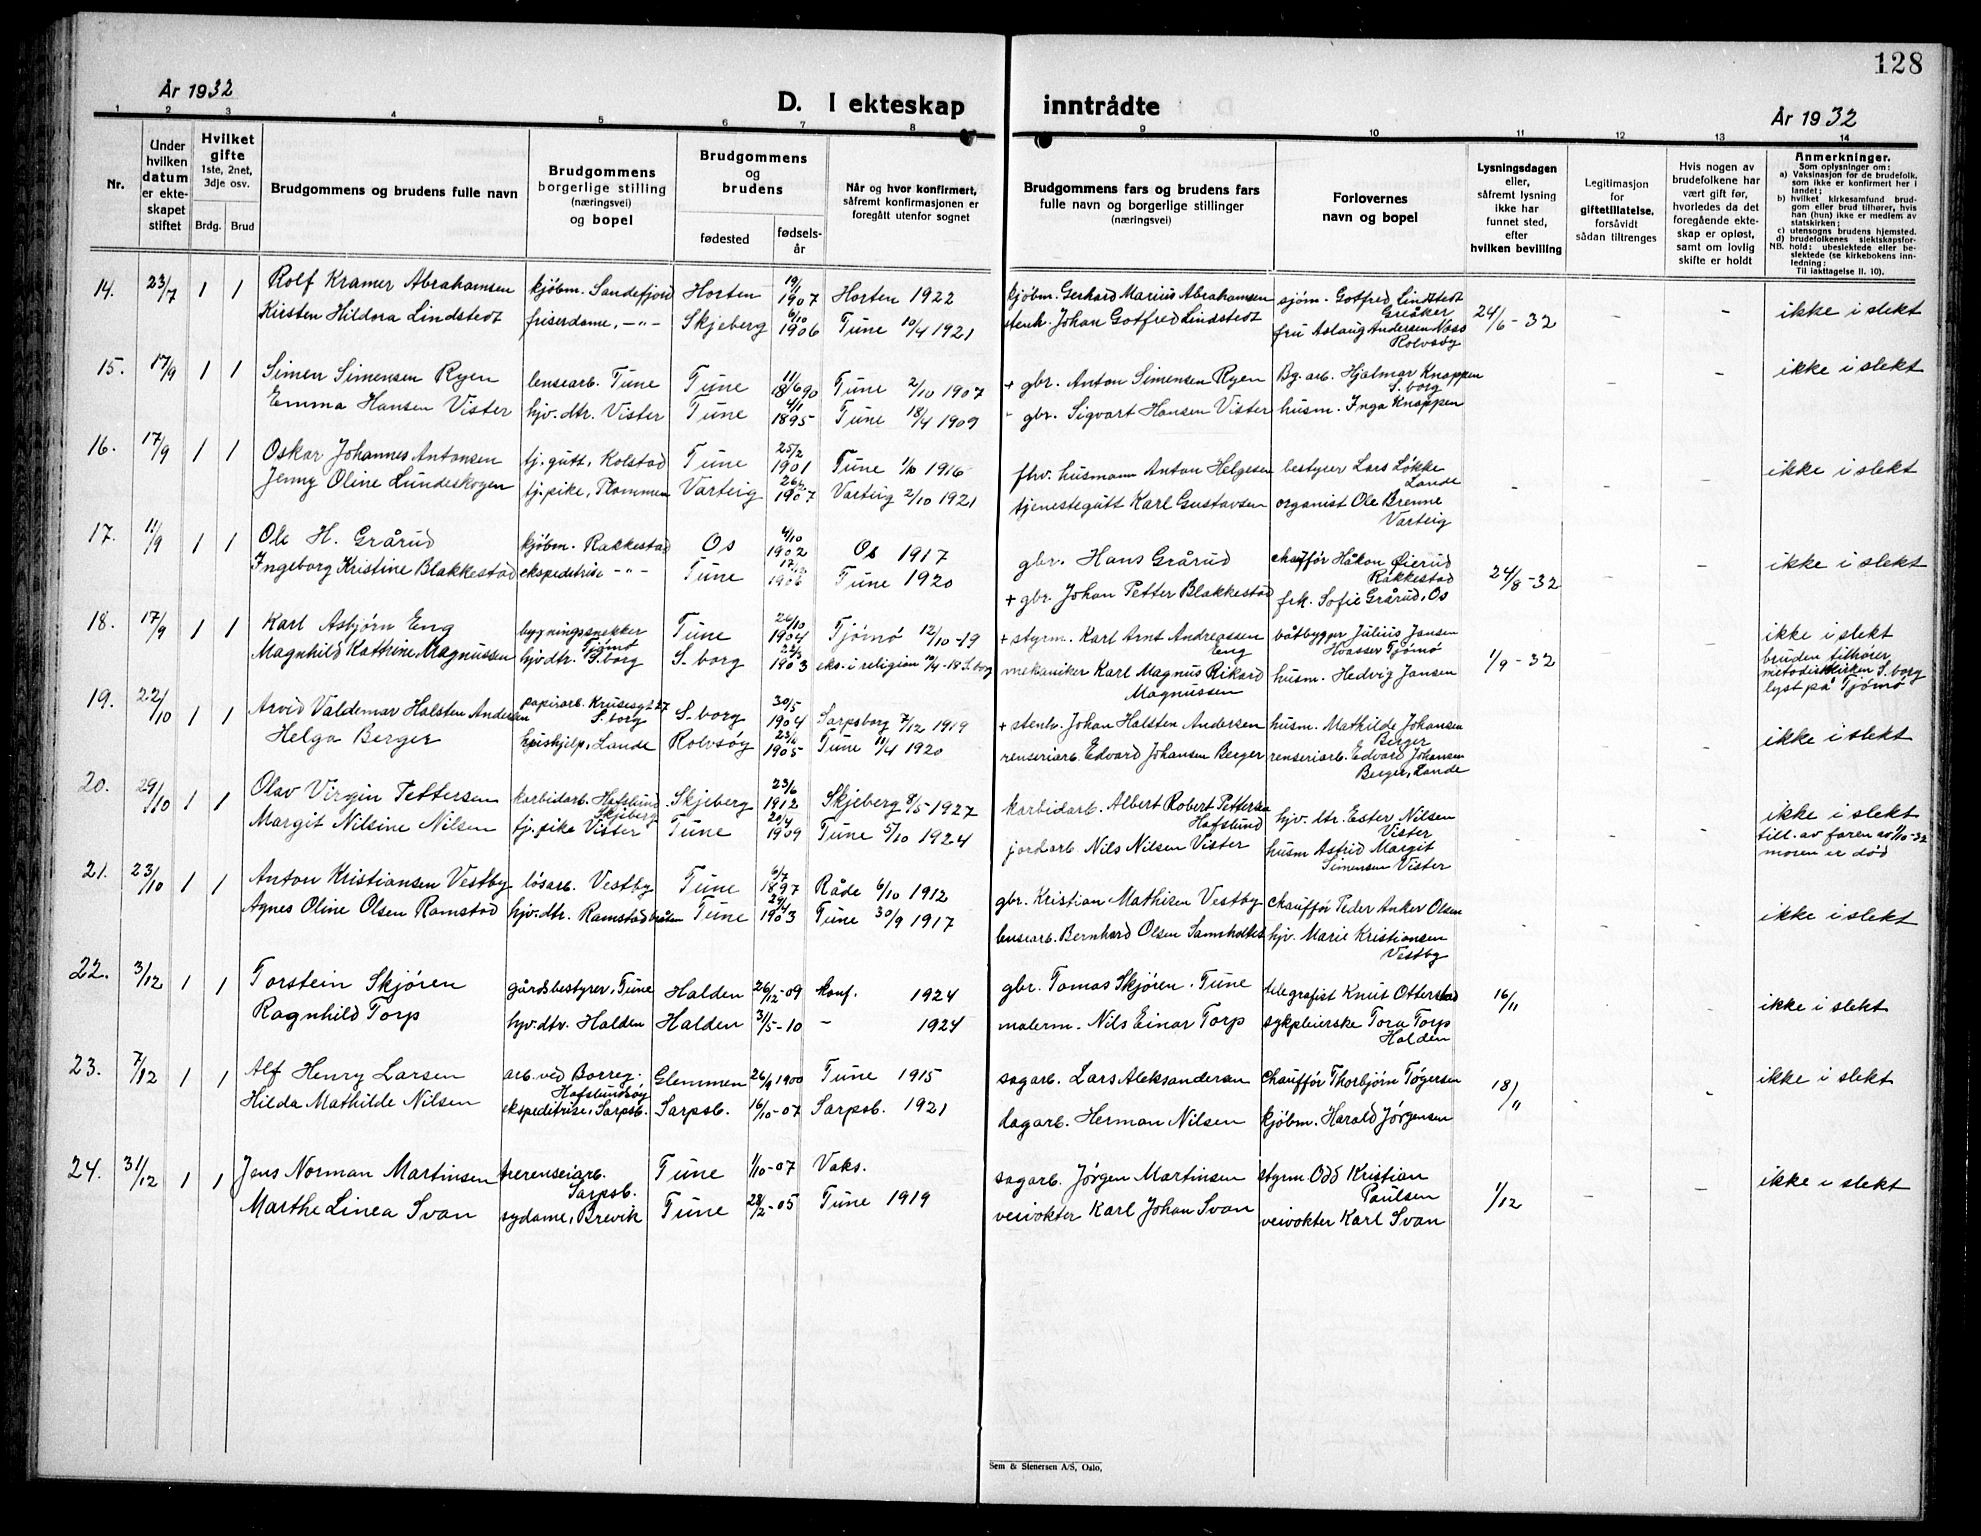 128
År 1932
D. I ekteskap inntrådte
År 1932
1 2 3 4 5 6 7 8 9 10 11 12 13 14
Nr.
Under hvilken datum er ekteskapet stiftet
Hvilket gifte 1ste, 2net, 3dje osv.
Brdg. Brud
Brudgommens og brudens fulle navn
Brudgommens borgerlige stilling (næringsvei) og bopel
Brudgommens og brudens
fødested
fødselsår
Når og hvor konfirmert, såfremt konfirmasjonen er foregått utenfor sognet
Brudgommens fars og brudens fars fulle navn og borgerlige stillinger (næringsvei)
Forlovernes navn og bopel
Lysningsdagen eller, såfremt lysning ikke har funnet sted, efter hvilken bevilling
Legitimasjon for giftetillatelse, forsåvidt sådan tiltrenges
Hvis nogen av brudefolkene har vært gift før, hvorledes da det foregående ekteskap er opløst, samt om lovlig skifte er holdt
Anmerkninger.
Som oplysninger om:
a) Vaksinasjon for de brudefolk. som ikke er konfirmert her i landet;
b) hvilket kirkesamfund brudgom eller brud tilhører, hvis han (hun) ikke er medlem av statskirken;
c) utensogns brudens hjemsted.
d) brudefolkenes slektskapsforhold: ubeslektede eller beslektede (se kirkebokens innledning: Til iakttagelse II. 10).
NB.
14. 23/7 1 1 Rolf Kramer Abrahamsen kjøbm. Sandefjord Horten 19/1 1907 Horten 1922 kjøbm. Gerhard Marius Abrahamsen sjøm. Gotfred Lindstedt Greåker 24/6-32 - - ikke i slekt
Kirsten Hildora Lindstedt friserdame, -"- Skjeberg 6/10 1906 Tune 10/4 1921 stenh. Johan Gotfred Lindstedt fru Aslaug Andersen Næss Rolvsøy
15. 17/9 1 1 Simen Simensen Ryen lensearb. Tune Tune 11/6 1890 Tune 2/10 1907 + gbr. Anton Simensen Ryen Bg. arb. Hjalmar Knappen S. borg - - ikke i slekt
Emma Hansen Vister hjv. dtr. Vister Tune 4/1 1895 Tune 18/4 1909 gbr. Sigvart Hansen Vister husm. Inga Knappen
16. 17/9 1 1 Oskar Johannes Antonsen tj. gutt, Kolstad Tune 25/2 1901 Tune 1/10 1916 fhv. husmann Anton Helgesen bestyrer Lars Løkke Lande - - - ikke i slekt
Jenny Oline Lundeskogen tj. pike, Plommen Varteig 1907 Varteig 2/10 1921 tjenestegutt Karl Gustavsen organist Ole Brenne Varteig
17. 11/9 1 1 Ole H. Grårud kjøbm. Rakkestad Os 4/10 1902 Os 1917 gbr. Hans Grårud chauffør Håkon Øierud Rakkestad 24/8-32 - - ikke i slekt
Ingeborg Kristine Blakkestad ekspeditrise -"- Tune 1906 Tune 1920 + gbr. Johan Petter Blakkestad frk. Sofie Grårud, Os
18. 17/9 1 1 Karl Asbjørn Eng bygningssnekker Tjømø Tune 26/10 1904 Tjømø 12/10-19 + styrm. Karl Arnt Andreassen Eng båtbygger Julius Jansen Hvasser Tjømø 1/9-32 - - ikke i slekt
Magnhild Kathrine Magnussen hjv. dtr. S. borg S. borg 1903 eks. i religion 10/4-18 S. borg mekaniker Karl Magnus Rikard Magnussen husm. Hedvig Jansen bruden tilhører metodistkirken S. borg lyst på Tjømø
19. 22/10 1 1 Arvid Valdemar Halsten Andersen papirarb. Krusesgt 27 S. borg S. borg 30/5 1904 Sarpsborg 7/12 1919 + stenh. Johan Halsten Andersen husm. Mathilde Johansen Berger - - - ikke i slekt
Helga Berger hushjelp, Lande Rolvsøy 1905 Tune 11/4 1920 renseriarb. Edvard Johansen Berger renseriarb. Edvard Johansen Berger, Lande
20. 29/10 1 1 Olav Virgin Pettersen karbidarb. Hafslund Skjeberg Skjeberg 23/6 1912 Skjeberg 8/5 1927 karbidarb. Albert Robert Pettersen Hafslund hjv. dtr. Ester Nilsen Vister - - - ikke i slekt
Margit Nilsine Nilsen tj. pike Vister Tune 20/4 1909 Tune 5/10 1924 jordarb. Nils Nilsen Vister husm Astrid Margit Simensen Vister till. av faren av 1/10-32 moren er død
21. 23/10 1 1 Anton Kristiansen Vestby løsarb. Vestby Tune 6/7 1897 Råde 6/10 1912 gbr. Kristian Mathisen Vestby chauffør Peder Anker Olsen - - ikke i slekt
Agnes Oline Olsen Ramstad hjv. dtr. Ramstadbråten Tune 1903 Tune 30/9 1917 lensearb. Bernhard Olsen hjv. Marie Kristiansen Vestby
22. 3/12 1 1 Torstein Skjøren gårdsbestyrer, Tune Halden 26/12-09 konf. 1924 gbr. Tomas Skjøren. Tune telegrafist Knut Otterstad 16/11 - - ikke i slekt
Ragnhild Torp hjv. dtr. Halden Halden 3/5-10 - 1924 malerm. Nils Einar Torp sykpleierske Tora Torp Halden
23. 7/12 1 1 Alf Henry Larsen arb. ved Borreg. Hafslundsøy Glemmen 26/9 1900 Tune 1915 sagarb. Lars Aleksandersen Chauffør Thorbjørn Tøgersen 18/11 - - ikke i slekt
Hilda Mathilde Nilsen ekspeditrise, Sarpsb. Sarpsb. 16/10-07 Sarpsb. 1921 dagarb. Herman Nilsen kjøbm. Harald Jørgensen
24. 31/12 1 1 Jens Norman Martinsen trerenseriarb. Sarpsb. Tune 1/10-07 Vaks. sagarb. Jørgen Martinsen styrm Odd Kristian Paulsen 1/12 - - ikke i slekt
Marthe Linea Svan sydame, Brevik Tune 28/2-05 Tune 1919 veivokter Karl Johan Svan veivokter Karl Svan
Sem & Stenersen A/S, Oslo,